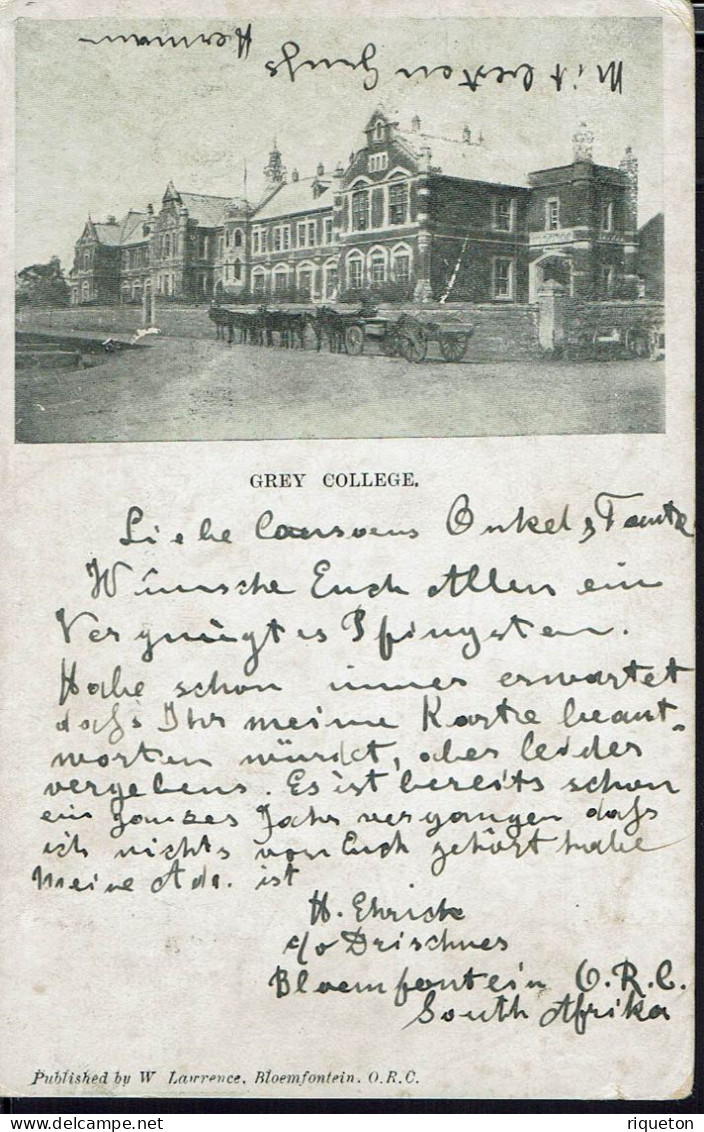 Mit besten Gruß
Hermann
GREY COLLEGE.
Liebe Onkel, Tante
Wünsche Euch Allen ein
Vergnügtes Pfingsten.
Habe schon immer erwartet
daß Ihr meine Karte beant-
worten würdet, aber leider
vergebens. Es ist bereits schon
ein ganzes Jahr vergangen daß
ich nichts von Euch gehört habe
Meine Adr. ist
H. Ehrich
c/o
Bloemfontein O.R.C.
South Afrika
Published by W Lawrence, Bloemfontein. O.R.C.
riqueton